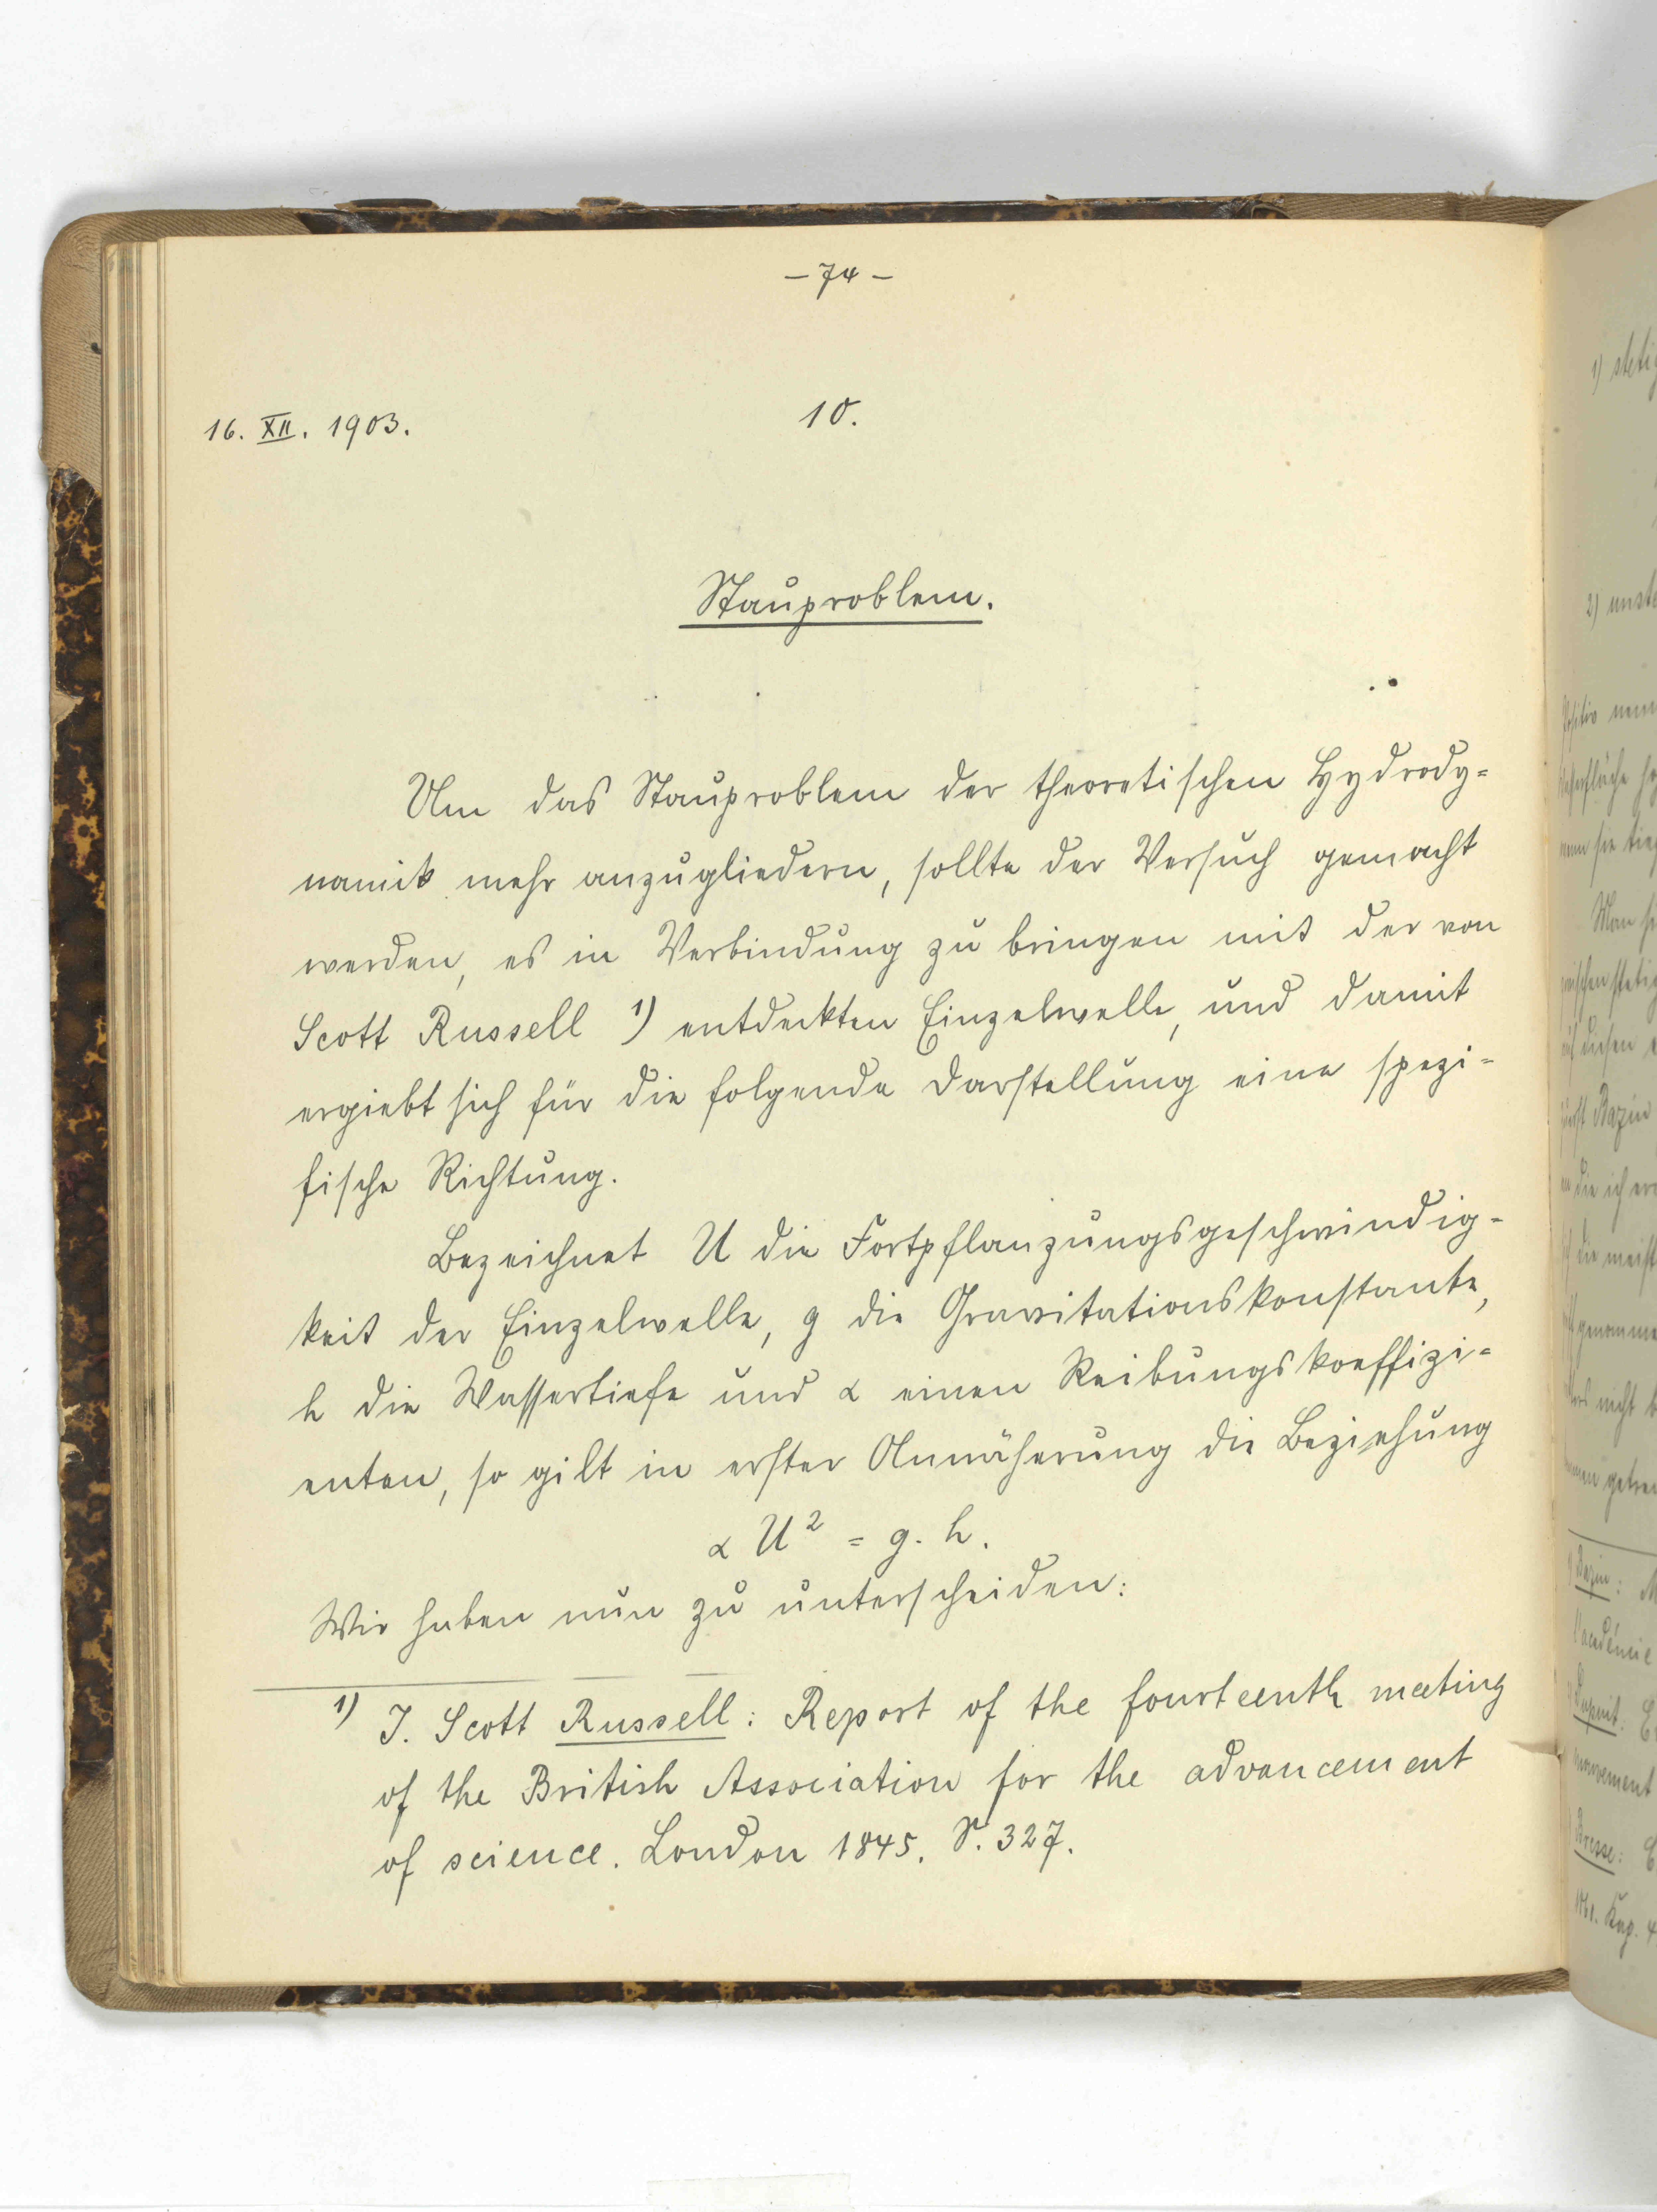 – 74 –
16. XII. 1903.
10.
Stauproblem.
Um das Stauproblem der theoretischen Hydrody-
namik mehr anzugliedern, sollte der Versuch gemacht
werden, es in Verbindung zu bringen mit der von
Scott Russell 1) entdeckten Einzelwelle, und damit
ergiebt sich für die folgende Darstellung eine spezi-
fische Richtung.
Bezeichnet U die Fortpflanzungsgeschwindig-
keit der Einzelwelle, g die Gravitationskonstante,
h die Wassertiefe und α einen Reibungskoeffizi-
enten, so gilt in erster Annäherung die Beziehung
α U² = g. h.
Wir haben nun zu unterscheiden:
1) J. Scott Russell: Report of the fourteenth meeting
of the British Association for the advancement
of science. London 1845. S. 327.
1)
2)
Man
Bazin
die ich
nicht
Bazin:
l'académie
Bresse:
1861. Kap. 4